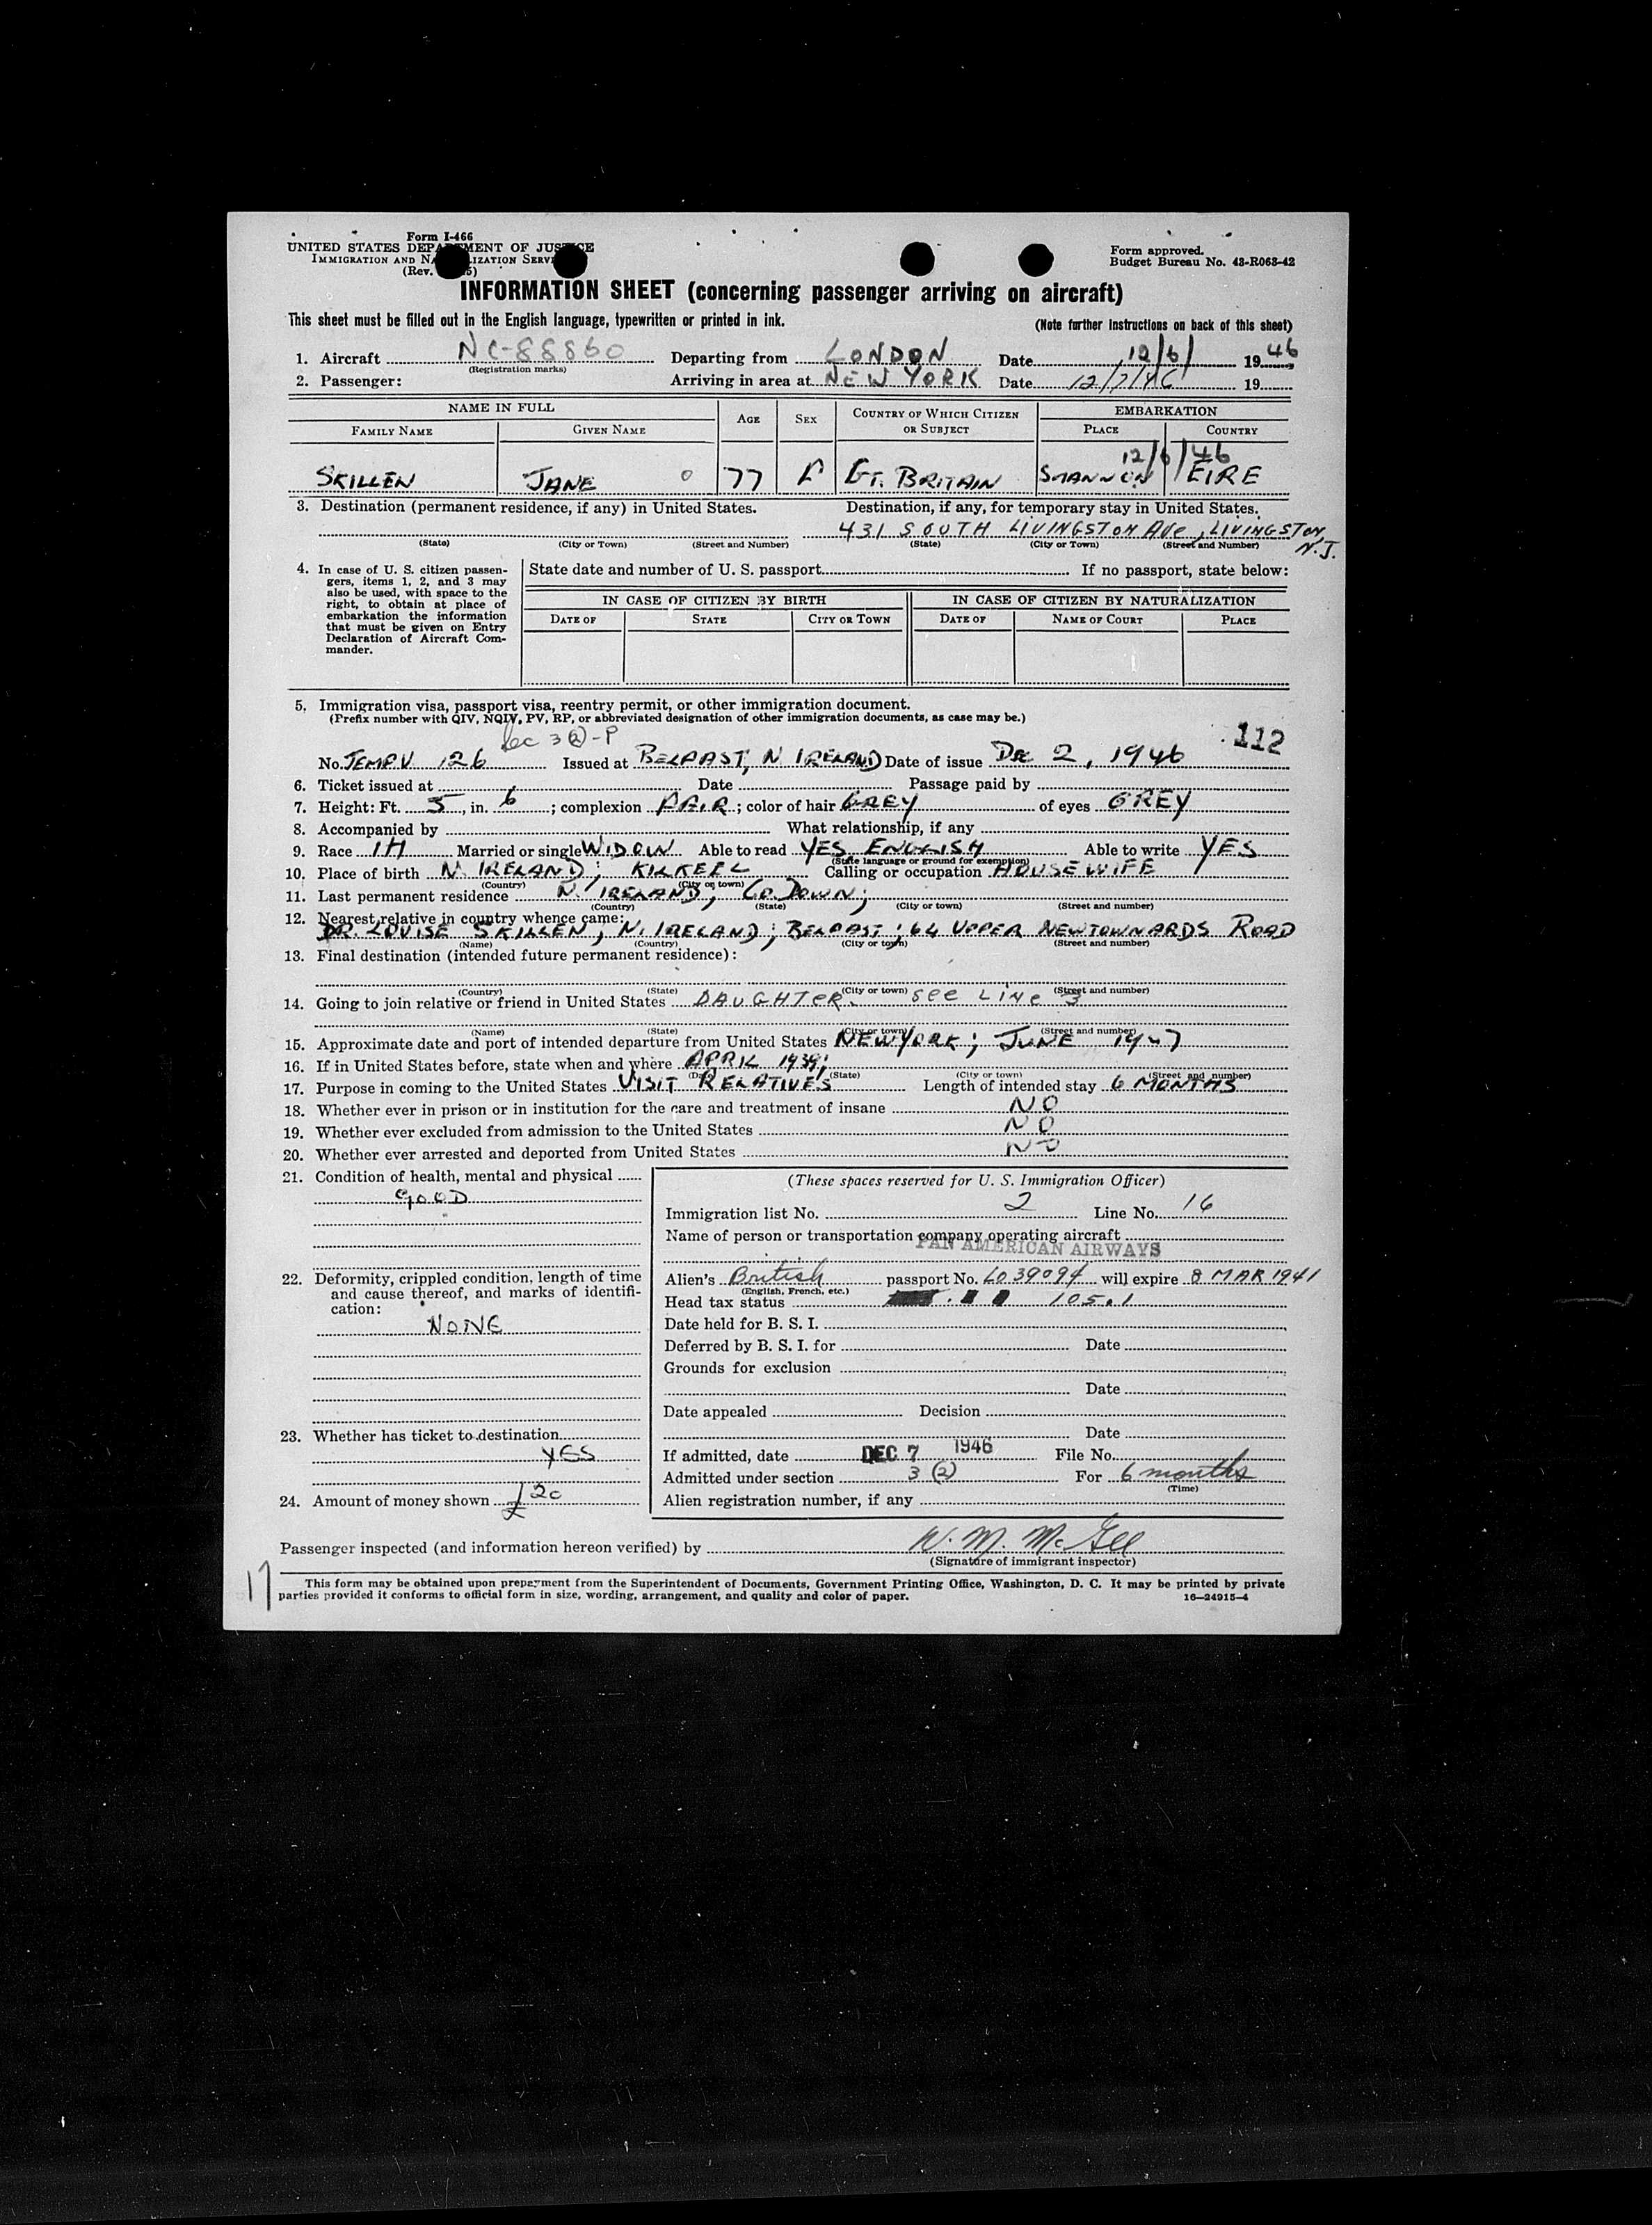 Form I-466
UNITED STATES DEPARTMENT OF JUSTICE
IMMIGRATION AND NATURALIZATION SERVICE
(Rev. 5)
Form approved.
Budget Bureau No. 43-R063-42
INFORMATION SHEET (concerning passenger arriving on aircraft)
This sheet must be filled out in the English language, typewritten or printed in ink.
(Note further instructions on back of this sheet)
1. Aircraft NC-88860 Departing from LONDON Date 12/6/ 1946
(Registration marks)
2. Passenger: Arriving in area at NEW YORK Date 12/7/46 19
NAME IN FULL AGE SEX COUNTRY OF WHICH CITIZEN OR SUBJECT EMBARKATION
FAMILY NAME GIVEN NAME PLACE COUNTRY
12/6/46
SKILLEN JANE 77 F GT. BRITAIN SHANNON EIRE
3. Destination (permanent residence, if any) in United States. Destination, if any, for temporary stay in United States.
431 SOUTH LIVINGSTON Ave, LIVINGSTON,
N.J.
(State) (City or Town) (Street and Number) (State) (City or Town) (Street and Number)
4. In case of U. S. citizen passengers, items 1, 2, and 3 may also be used, with space to the right, to obtain at place of embarkation the information that must be given on Entry Declaration of Aircraft Commander.
State date and number of U. S. passport If no passport, state below:
IN CASE OF CITIZEN BY BIRTH IN CASE OF CITIZEN BY NATURALIZATION
DATE OF STATE CITY OR TOWN DATE OF NAME OF COURT PLACE
5. Immigration visa, passport visa, reentry permit, or other immigration document.
(Prefix number with QIV, NQIV, PV, RP, or abbreviated designation of other immigration documents, as case may be.)
Sec 3(2)-P
112
No. TEMP.V 126 Issued at BELFAST, N IRELAND Date of issue DEC 2, 1946
6. Ticket issued at Date Passage paid by
7. Height: Ft. 5, in. 6; complexion FAIR; color of hair GREY of eyes GREY
8. Accompanied by What relationship, if any
9. Race IH Married or single WIDOW Able to read YES ENGLISH Able to write YES
(State language or ground for exemption)
10. Place of birth N. IRELAND; KILKEEL Calling or occupation HOUSEWIFE
(Country) (City or town)
11. Last permanent residence N. IRELAND, CO. DOWN;
(Country) (State) (City or town) (Street and number)
12. Nearest relative in country whence came:
DR. LOUISE SKILLEN, N. IRELAND; BELFAST; 64 UPPER NEWTOWNARDS ROAD
(Name) (Country) (City or town) (Street and number)
13. Final destination (intended future permanent residence):
(Country) (State) (City or town) (Street and number)
14. Going to join relative or friend in United States DAUGHTER. see Line 3
(Name) (State) (City or town) (Street and number)
15. Approximate date and port of intended departure from United States NEW YORK; JUNE 1947
16. If in United States before, state when and where APRIL 1939;
(Date) (State) (City or town) (Street and number)
17. Purpose in coming to the United States VISIT RELATIVES Length of intended stay 6 MONTHS
18. Whether ever in prison or in institution for the care and treatment of insane NO
19. Whether ever excluded from admission to the United States NO
20. Whether ever arrested and deported from United States NO
21. Condition of health, mental and physical
GOOD
22. Deformity, crippled condition, length of time and cause thereof, and marks of identification:
NONE
23. Whether has ticket to destination
YES
24. Amount of money shown £20
(These spaces reserved for U. S. Immigration Officer)
Immigration list No. 2 Line No. 16
Name of person or transportation company operating aircraft
PAN AMERICAN AIRWAYS
Alien's British passport No. LO39094 will expire 8 MAR 1941
(English, French, etc.)
Head tax status 105.1
Date held for B. S. I.
Deferred by B. S. I. for Date
Grounds for exclusion
Date
Date appealed Decision
Date
If admitted, date DEC 7 1946 File No.
Admitted under section 3(2) For 6 months
(Time)
Alien registration number, if any
Passenger inspected (and information hereon verified) by W. M. McGee
(Signature of immigrant inspector)
17
This form may be obtained upon prepayment from the Superintendent of Documents, Government Printing Office, Washington, D. C. It may be printed by private
parties provided it conforms to official form in size, wording, arrangement, and quality and color of paper.
16—24915-4